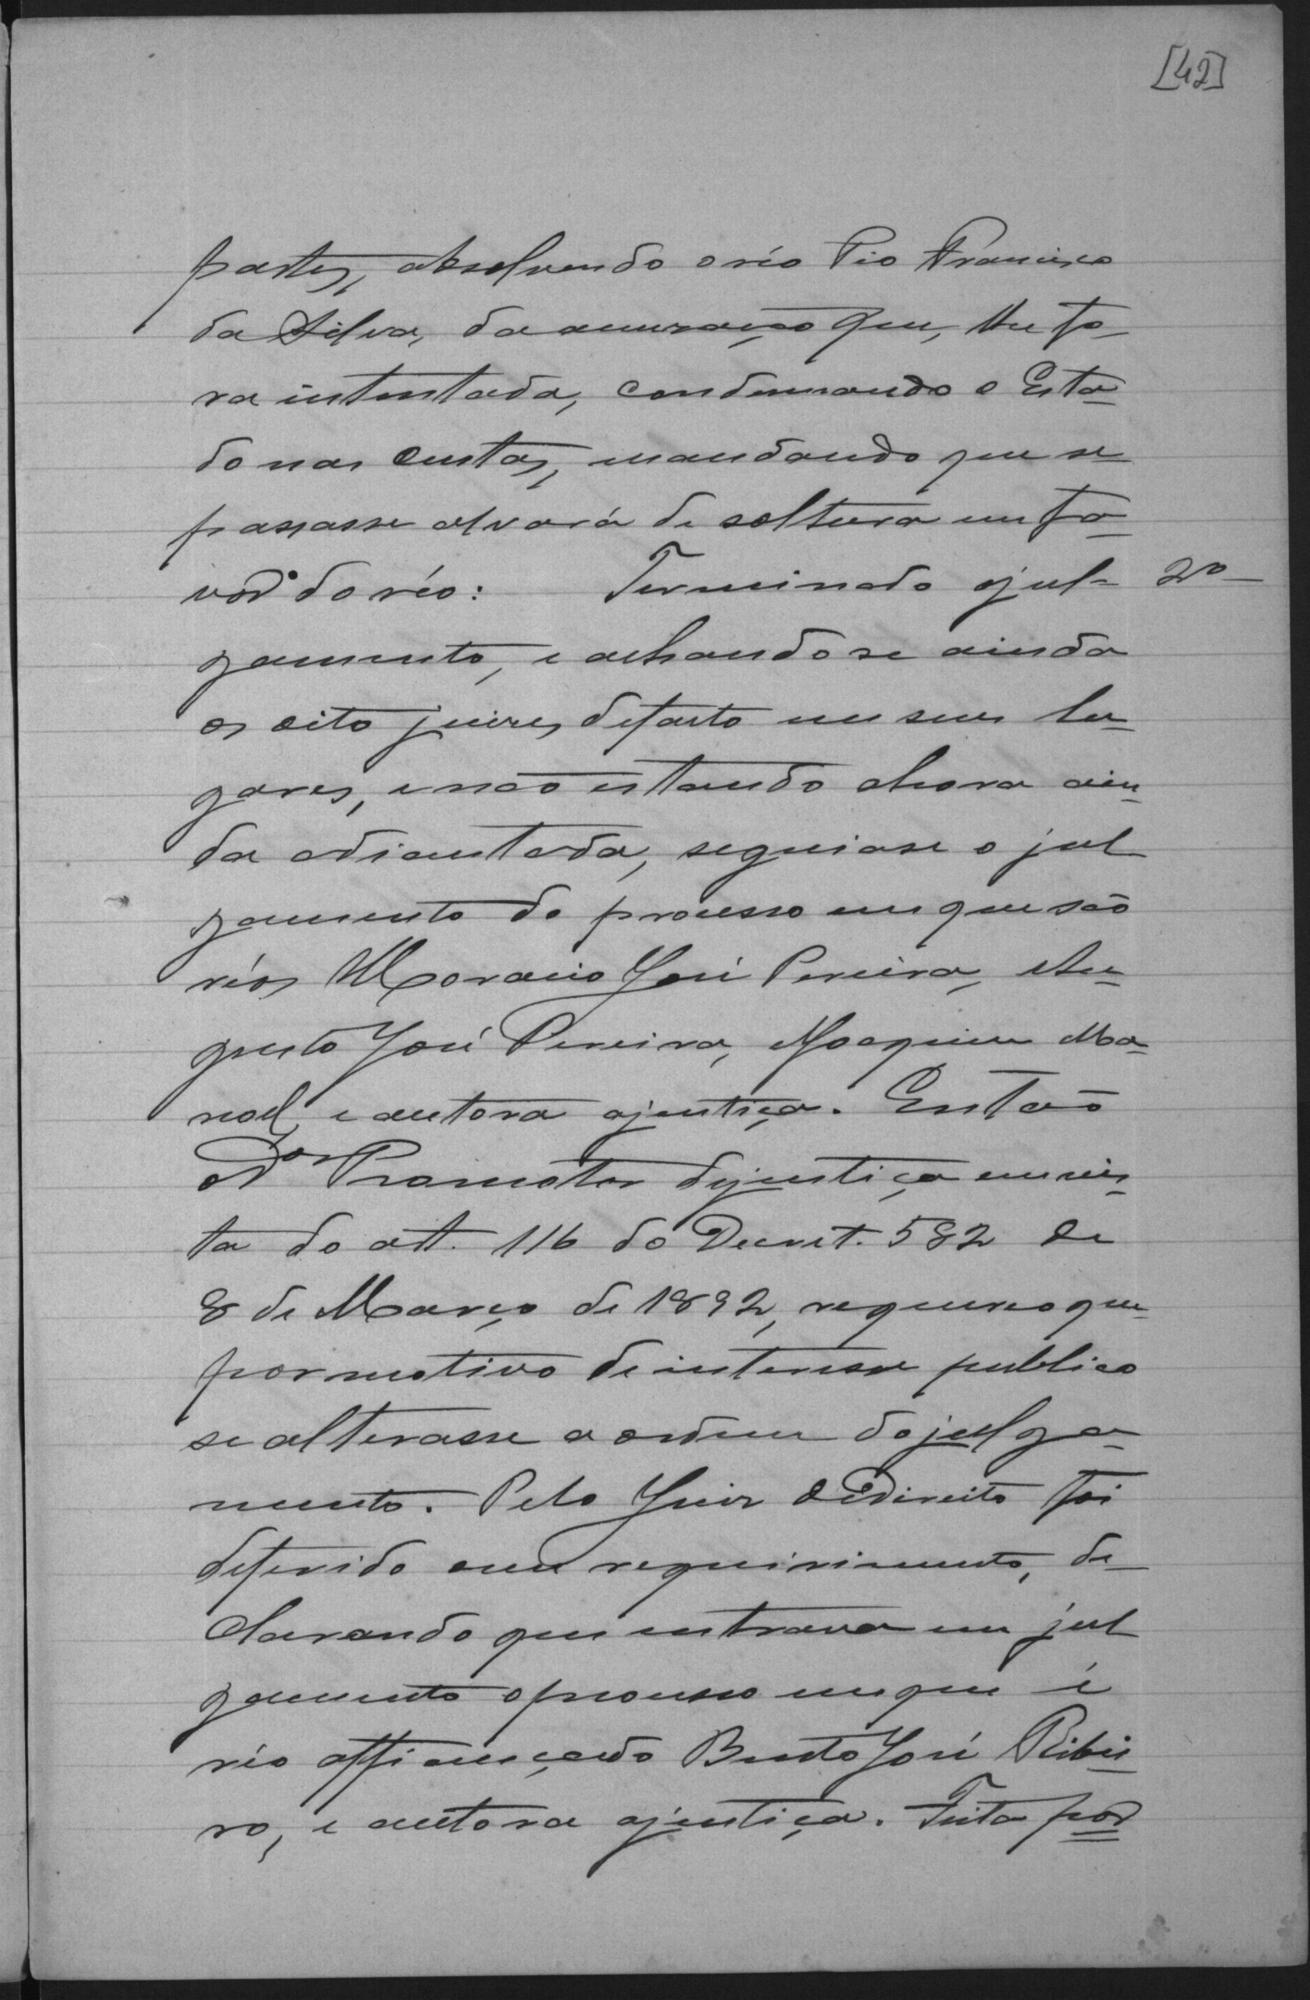 [42]
partes, absolvendo o réo Pio Francisco
da Silva, da accusação que, lhe fo-
ra intentada, condemnando o Esta-
do nas custas, mandando que se
passasse alvará de soltura em fa-
vor do réo: Terminado o jul- 2º
gamento, e achando se ainda
os oito juizes de facto em seus lu-
gares, e não estando a hora ain-
da adiantada, seguiase o jul
gamento do processo em que são
réos Horacio José Pereira, Au-
gusto José Pereira, Joaquim Ma-
noel e autora a justiça. Então
o Dor Promotor de justiça em vis-
ta do art. 116 do Decret. 582 de
8 de Março de 1892, requereo que
por motivo de interesse publico
se alterasse a ordem do julga-
mento. Pelo Juiz de Direito foi
deferido o seu requirimento, de-
clarando que entrava em jul
gamento o processo em que é
réo affiançado Bento José Ribei-
ro, e autora a justiça. Feita por